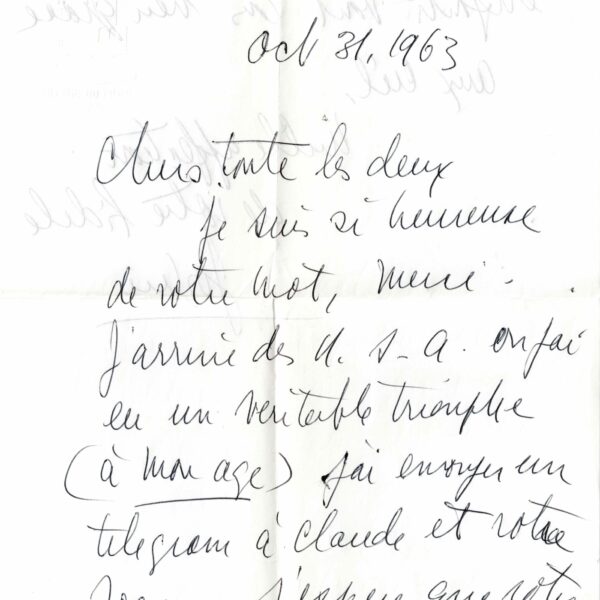 Oct 31, 1963
Chers toute les deux
je suis si heureuse
de votre mot, merci -
J'arrive des U. S-A. ou j'ai
eu un veritable triomphe
(à mon age) j'ai envoyer un
telegram à Claude et votre
j'espere que votre